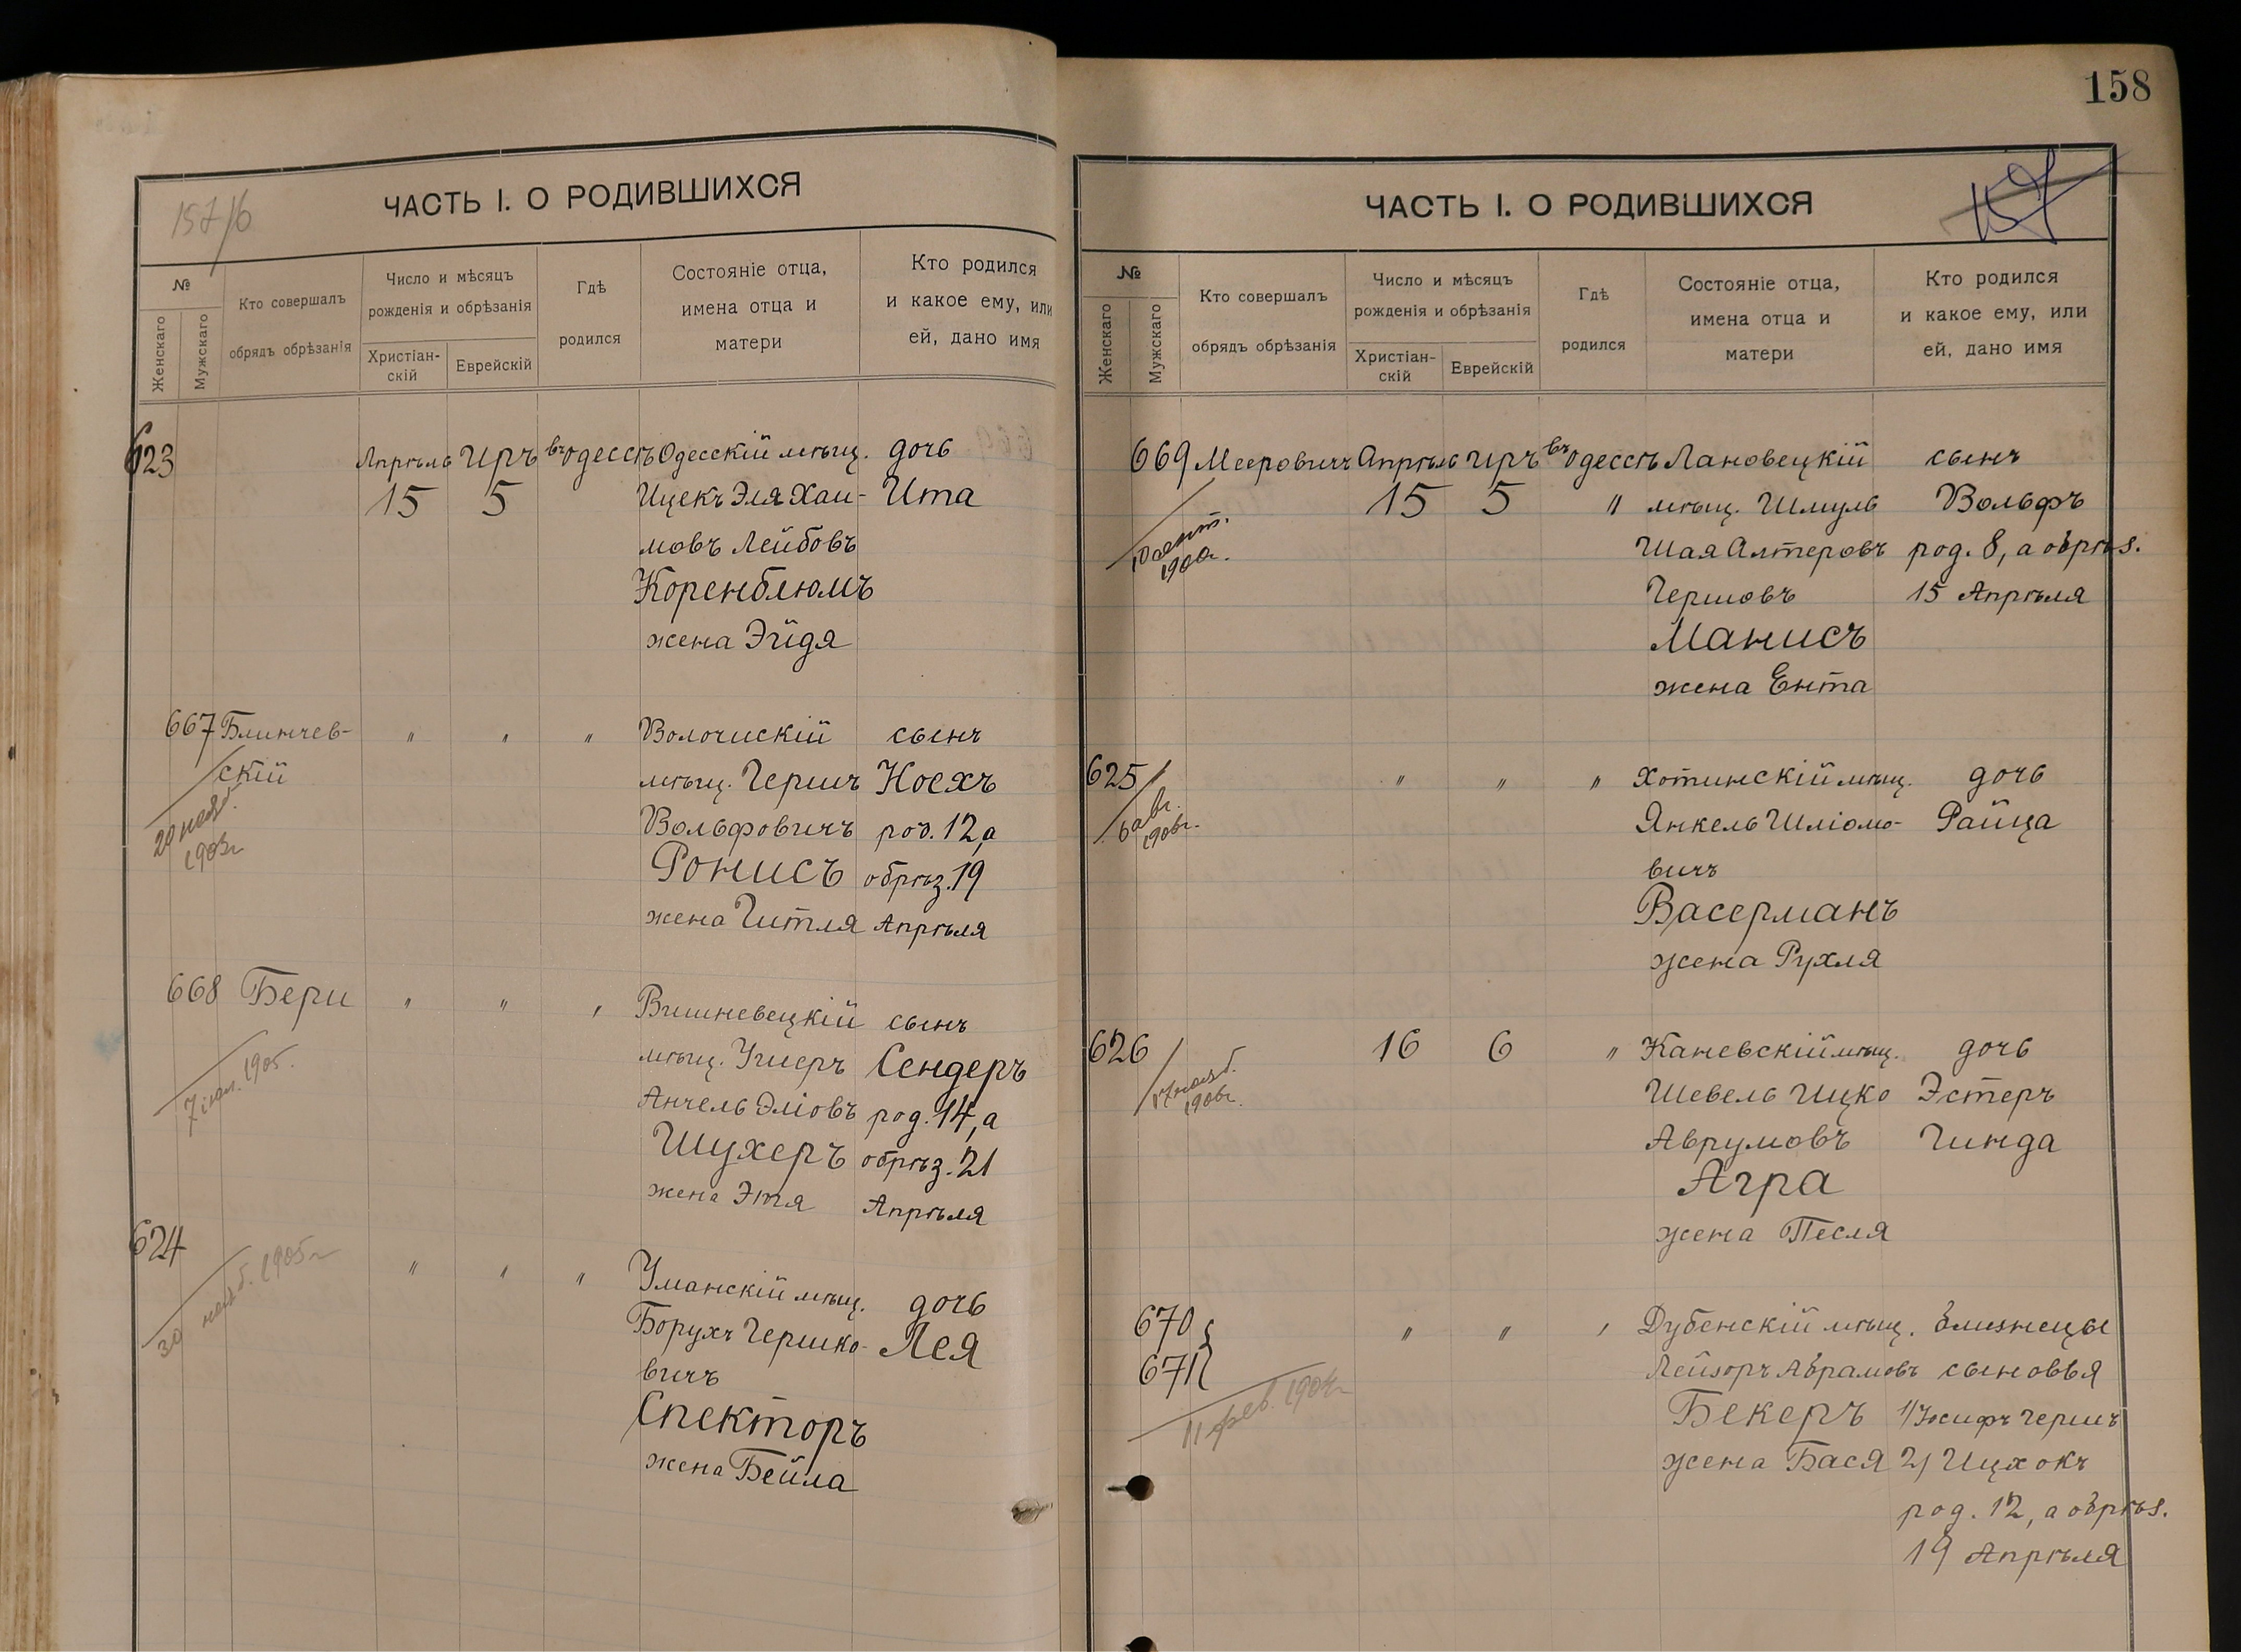 158
157/б
ЧАСТЬ I. О РОДИВШИХСЯ
№
Женскаго
Мужскаго
Кто совершалъ
обрядъ обрѣзанія
Число и мѣсяцъ
рожденія и обрѣзанія
Христіан-
скій
Еврейскій
Гдѣ
родился
Состояніе отца,
имена отца и
матери
Кто родился
и какое ему, или
ей, дано имя
623 Апрѣль Иръ въ Одессѣ Одесскій мѣщ. дочь
15 5 Ицекъ Эля Хаи- Ита
мовъ Лейбовъ
Коренблюмъ
жена Эйдя
667 Блинчев- " " " Волочискій сынъ
скій мѣщ. Гершъ Ноехъ
20 нояб. Вольфовичъ род. 12, а
1903г Ронисъ обрѣз. 19
жена Гитля Апрѣля
668 Бери " " " Вишневецкій сынъ
мѣщ. Ушеръ Сендеръ
7 іюл. 1905. Анчель Эліовъ род. 14, а
Шухеръ обрѣз. 21
жена Этя Апрѣля
624 " " " Уманскій мѣщ. дочь
30 нояб. 1905г Борухъ Гершко- Лея
вичъ
Спекторъ
жена Бейла
ЧАСТЬ I. О РОДИВШИХСЯ
157
№
Женскаго
Мужскаго
Кто совершалъ
обрядъ обрѣзанія
Число и мѣсяцъ
рожденія и обрѣзанія
Христіан-
скій
Еврейскій
Гдѣ
родился
Состояніе отца,
имена отца и
матери
Кто родился
и какое ему, или
ей, дано имя
669 Мееровичъ Апрѣль Иръ въ Одессѣ Лановецкій сынъ
15 5 " мѣщ. Шмуль Вольфъ
Шая Алтеровъ род. 8, а обрѣз.
Гершовъ 15 Апрѣля
Манисъ
жена Ента
625 " " " Хотинскій мѣщ. дочь
6 авг. Янкель Шліомо- Райца
1906г. вичъ
Васерманъ
жена Рухля
626 16 6 " Каневскій мѣщ. дочь
17 нояб. Шевель Ицко Эстеръ
1906г. Аврумовъ Гинда
Агра
жена Песля
670 " " " Дубенскій мѣщ. близнецы
671 Лейзоръ Абрамовъ сыновья
11 фев. Бекеръ 1/ Іосифъ Гершъ
жена Бася 2/ Ицхокъ
род. 12, а обрѣз.
19 Апрѣля